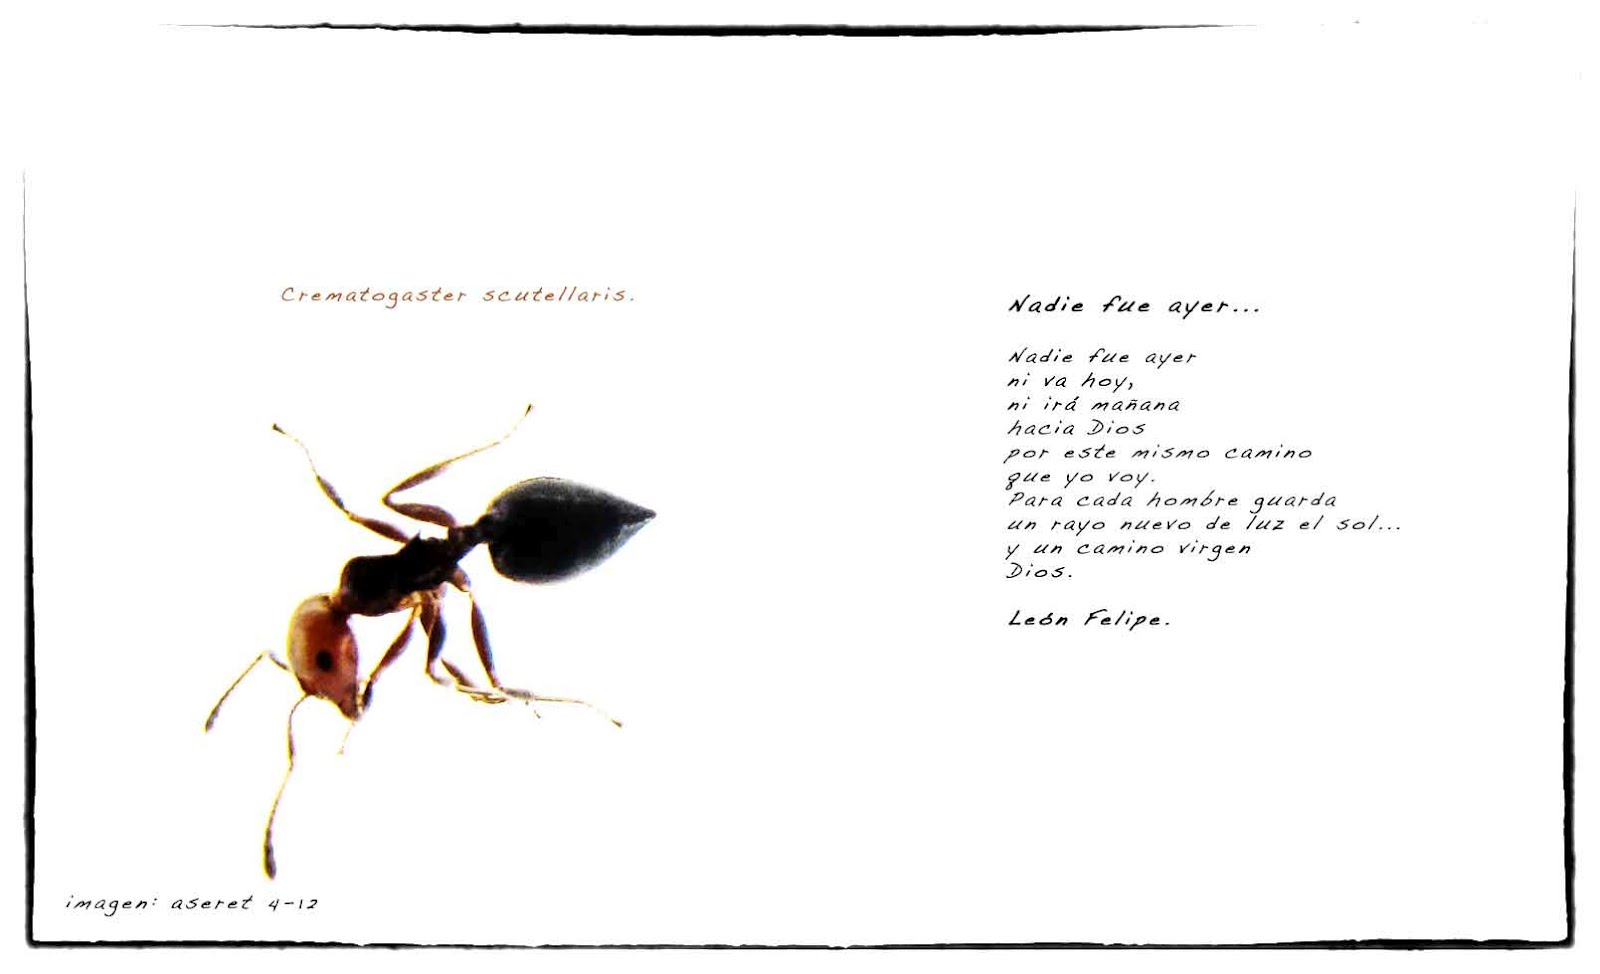 Crematogaster scutellaris.
Nadie fue ayer...
Nadie fue ayer
ni va hoy,
ni irá mañana
hacia Dios
por este mismo camino
que yo voy.
Para cada hombre guarda
un rayo nuevo de luz el sol...
y un camino virgen
Dios.
León Felipe.
imagen: aseret 4-12